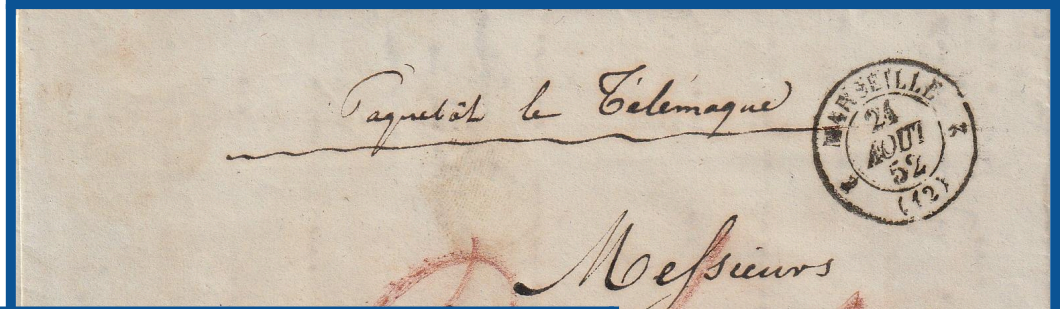 Paquebot le Télémaque
MARSEILLE
2 2
21
AOUT
52
(12)
Messieurs